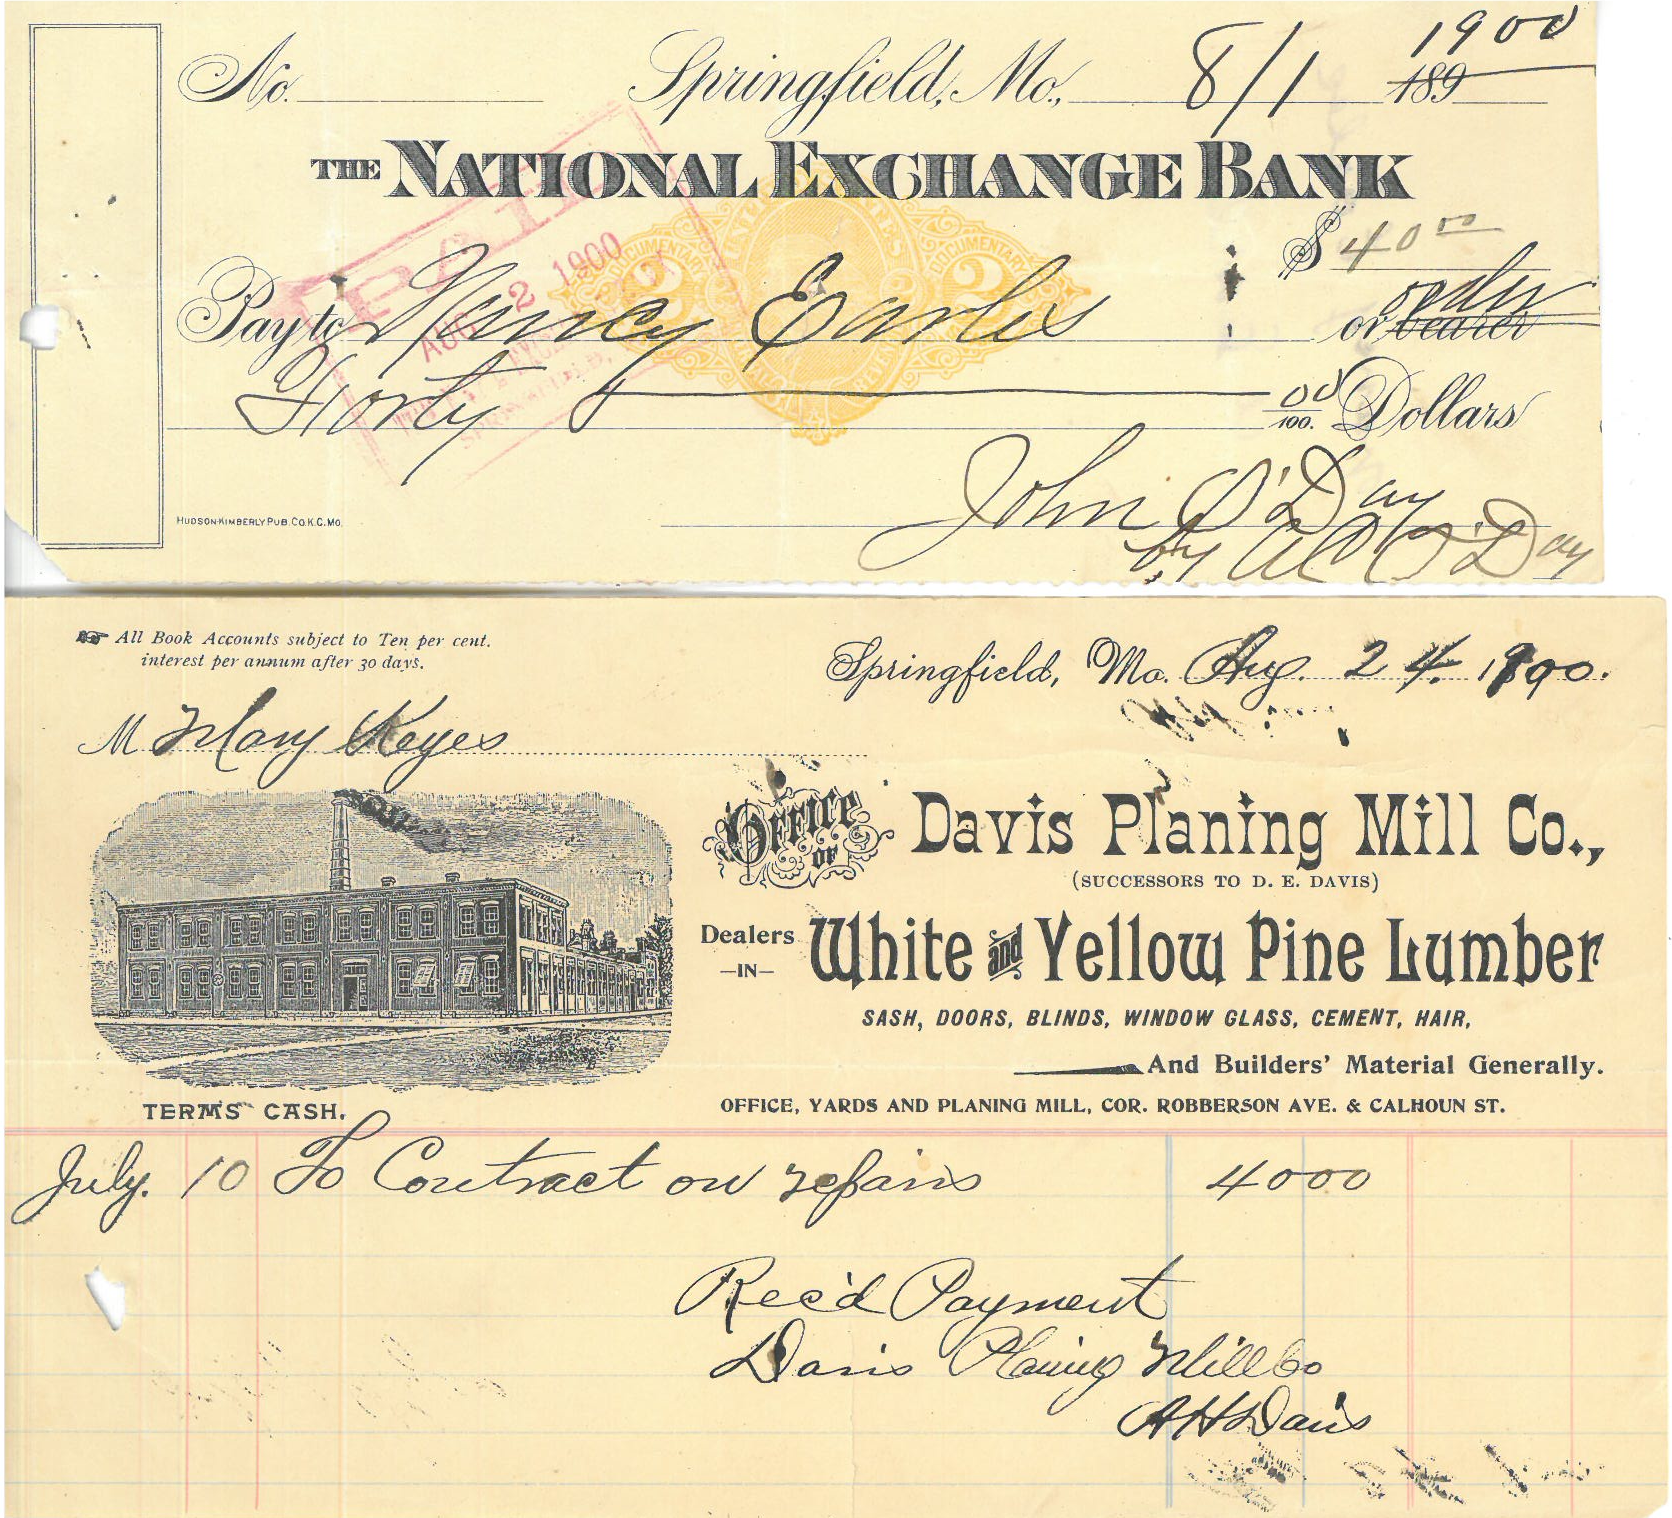 No. Springfield, Mo., 8/1 1900
189
THE NATIONAL EXCHANGE BANK
PAID
$ 40 00
AUG 2 1900
DOCUMENTARY DOCUMENTARY
2 2
Pay to Nancy Earles or bearer order
Forty 00/100. Dollars
John O'Day
by O'Day
HUDSON-KIMBERLY PUB. CO. K.C. MO.
All Book Accounts subject to Ten per cent.
interest per annum after 30 days.
Springfield, Mo. Aug. 24. 1900.
M Mary Keyes
OFFICE OF Davis Planing Mill Co.,
(SUCCESSORS TO D. E. DAVIS)
Dealers
—IN—
White and Yellow Pine Lumber
SASH, DOORS, BLINDS, WINDOW GLASS, CEMENT, HAIR,
And Builders' Material Generally.
TERMS CASH.
OFFICE, YARDS AND PLANING MILL, COR. ROBBERSON AVE. & CALHOUN ST.
July. 10 To Contract on repairs 4000
Rec'd Payment
Davis Planing Mill Co
AH Davis